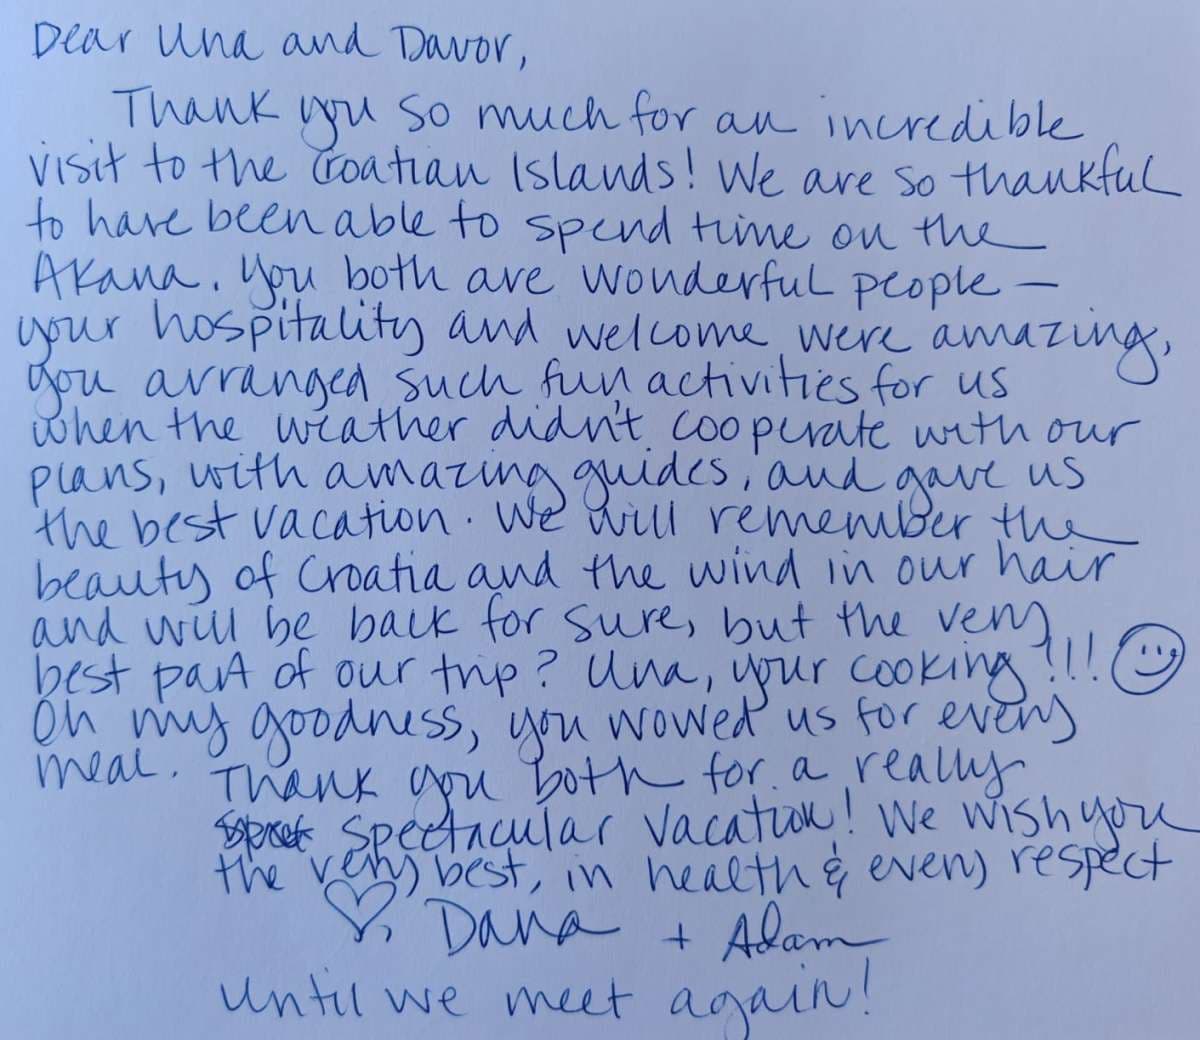 Dear Una and Davor,
Thank you so much for an incredible
visit to the Croatian Islands! We are so thankful
to have been able to spend time on the
Akana. You both are wonderful people —
your hospitality and welcome were amazing,
you arranged such fun activities for us
when the weather didn't cooperate with our
plans, with amazing guides, and gave us
the best vacation. We will remember the
beauty of Croatia and the wind in our hair
and will be back for sure, but the very
best part of our trip? Una, your cooking!!!
Oh my goodness, you wowed us for every
meal.
Thank you both for a really
spectacular vacation! We wish you
the very best, in health & every respect
, Dana + Adam
Until we meet again!